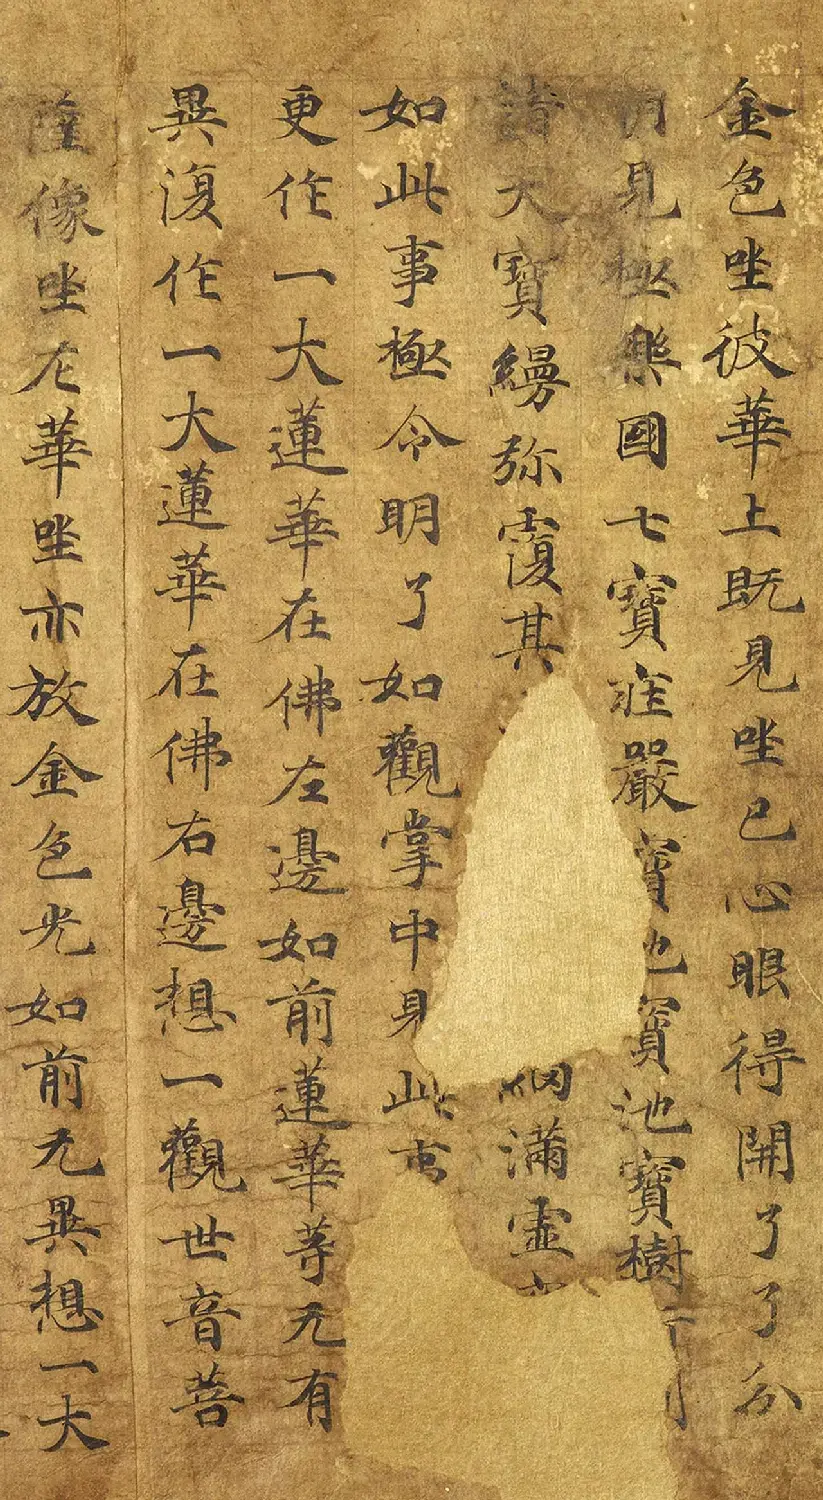 金色坐彼華上既見坐已心眼得開了了分
明見極樂國七寶莊嚴寶地寶池寶樹行列
諸天寶縵弥覆其網滿虛
如此事極令明了如觀掌中見此事
更作一大蓮華在佛左邊如前蓮華等无有
異復作一大蓮華在佛右邊想一觀世音菩
薩像坐左華坐亦放金色光如前无異想一大